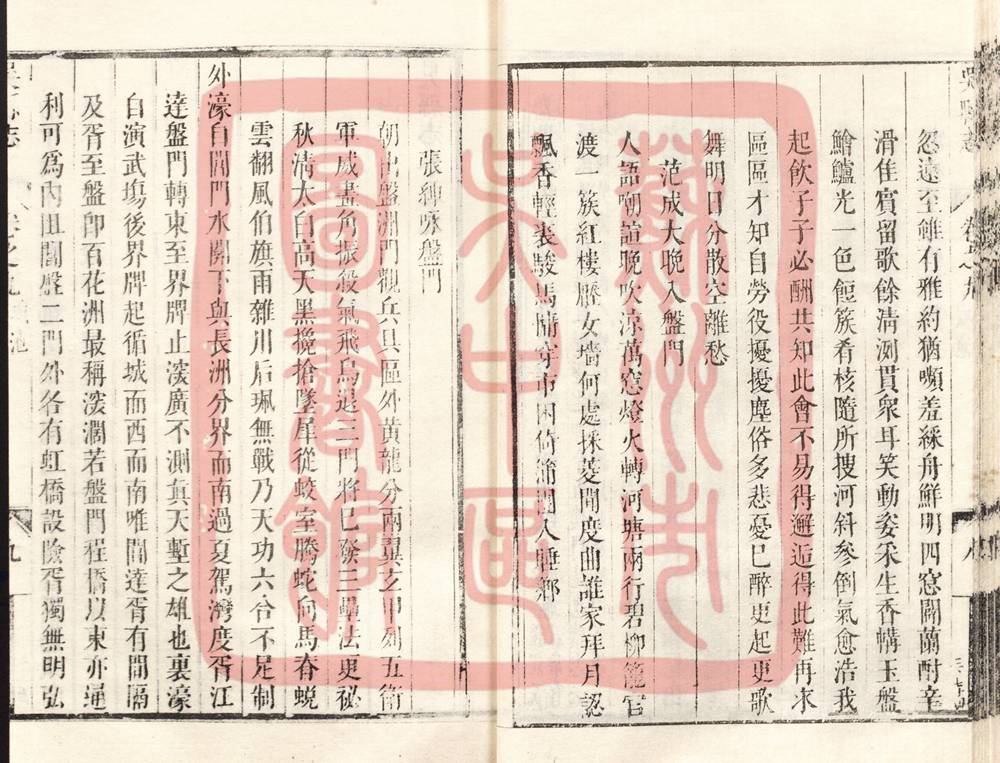 忽遠至雖有雅約猶嚬羞綵舟鮮明四窓闢蘭酎辛
滑佳實留歌餘清測貫衆耳笑動姿釆生香幬玉盤
鱠鱸光一色餖簇肴核隨所搜河斜參倒氣愈浩我
起飲子子必酬共知此會不易得邂逅得此難再求
區區才知自勞役擾擾塵俗多悲憂巳醉更起更歌
舞明日分散空離愁
范成大晚入盤門
人語嘲諠晚吹涼萬窓燈火轉河塘兩行碧柳籠官
渡一簇紅樓壓女墻何處採菱聞度曲誰家拜月認
飄香輕裘駿馬慵穿市困倚蒲團入睡鄉
張紳咏盤門
朝出盤洲門觀兵具區外黄龍分兩翼玄甲列五衛
軍威畫角振殺氣飛鳥退三門將巳發三畢法更祕
秋清太白高天黑攙搶墜犀從蛟室騰蛇向馬春蜕
雲翻風伯旗雨雜川后珮無戰乃天功六合不足制
外濠自閶門水關下與長洲分界而南過夏駕灣度胥江
達盤門轉東至界牌止深廣不測真天塹之雄也裏濠
自演武塲後界牌起循城而西而南唯閶達胥有間隔
及胥至盤卽百花洲最稱深濶若盤門程橋以東亦通
利可爲內固閶盤二門外各有虹橋設險胥獨無明弘
八
九